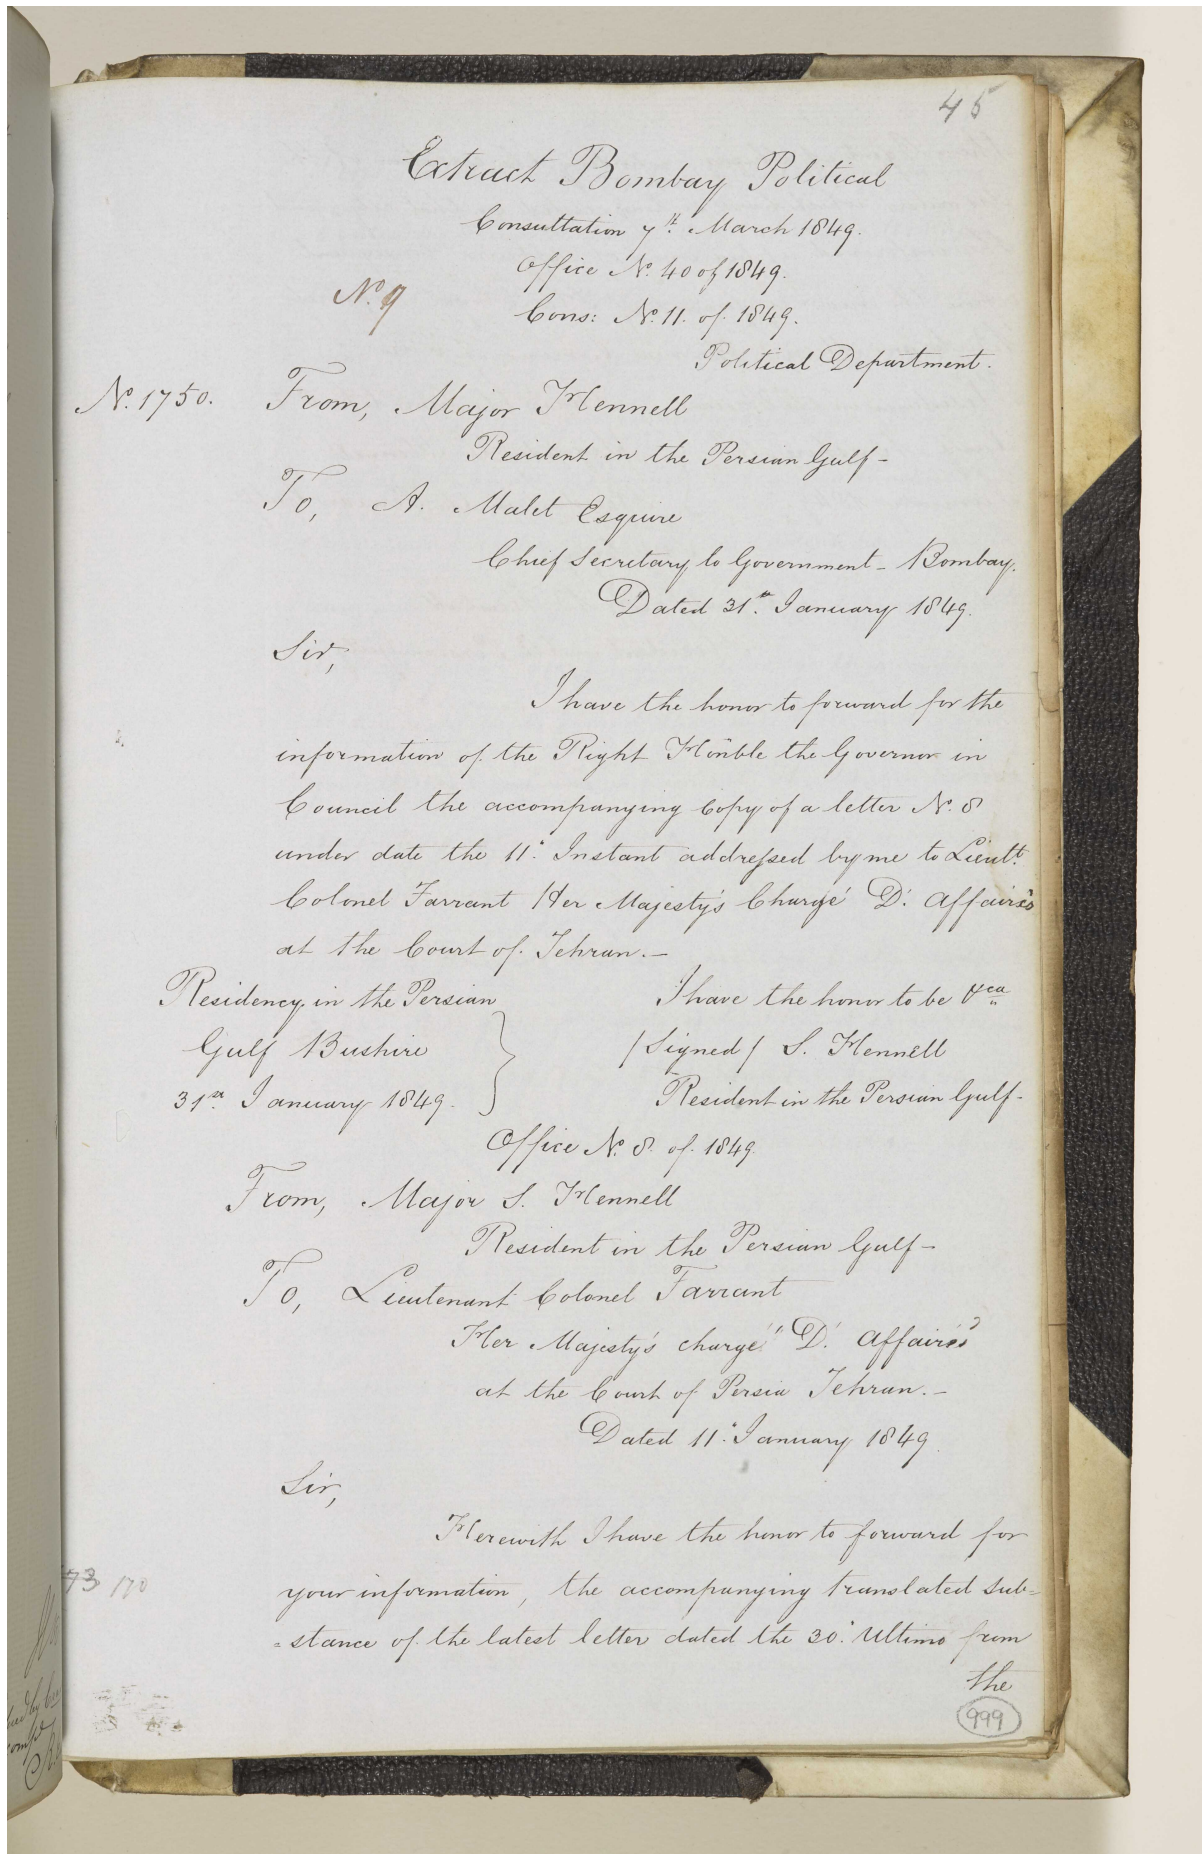 45
Extract Bombay Political
Consultation 7th. March 1849.
Office No. 40 of 1849.
No. 9
Cons: No. 11. of. 1849.
Political Department.
No. 1750.
From, Major Hennell
Resident in the Persian Gulf-
To, A. Malet Esquire
Chief Secretary to Government - Bombay.
Dated 31st. January 1849.
Sir,
I have the honor to forward for the
information of the Right Honble the Governor in
Council the accompanying Copy of a letter No. 8
under date the 11. Instant addressed by me to Lieutt.
Colonel Farrant Her Majesty's Chargé D'. Affairés
at the Court of. Tehran.-
Residency in the Persian
Gulf Bushire
31st. January 1849.
I have the honor to be &ca
/Signed/ S. Hennell
Resident in the Persian Gulf-
Office No. 8. of. 1849.
From, Major S. Hennell
Resident in the Persian Gulf-
To, Lieutenant Colonel Farrant
Her Majesty's chargé D'. Affairés
at the Court of Persia Tehran.-
Dated 11. January 1849.
Sir,
Herewith I have the honor to forward for
your information, the accompanying translated sub=
=stance of the latest letter dated the 30. Ultimo from
the
73 170
999